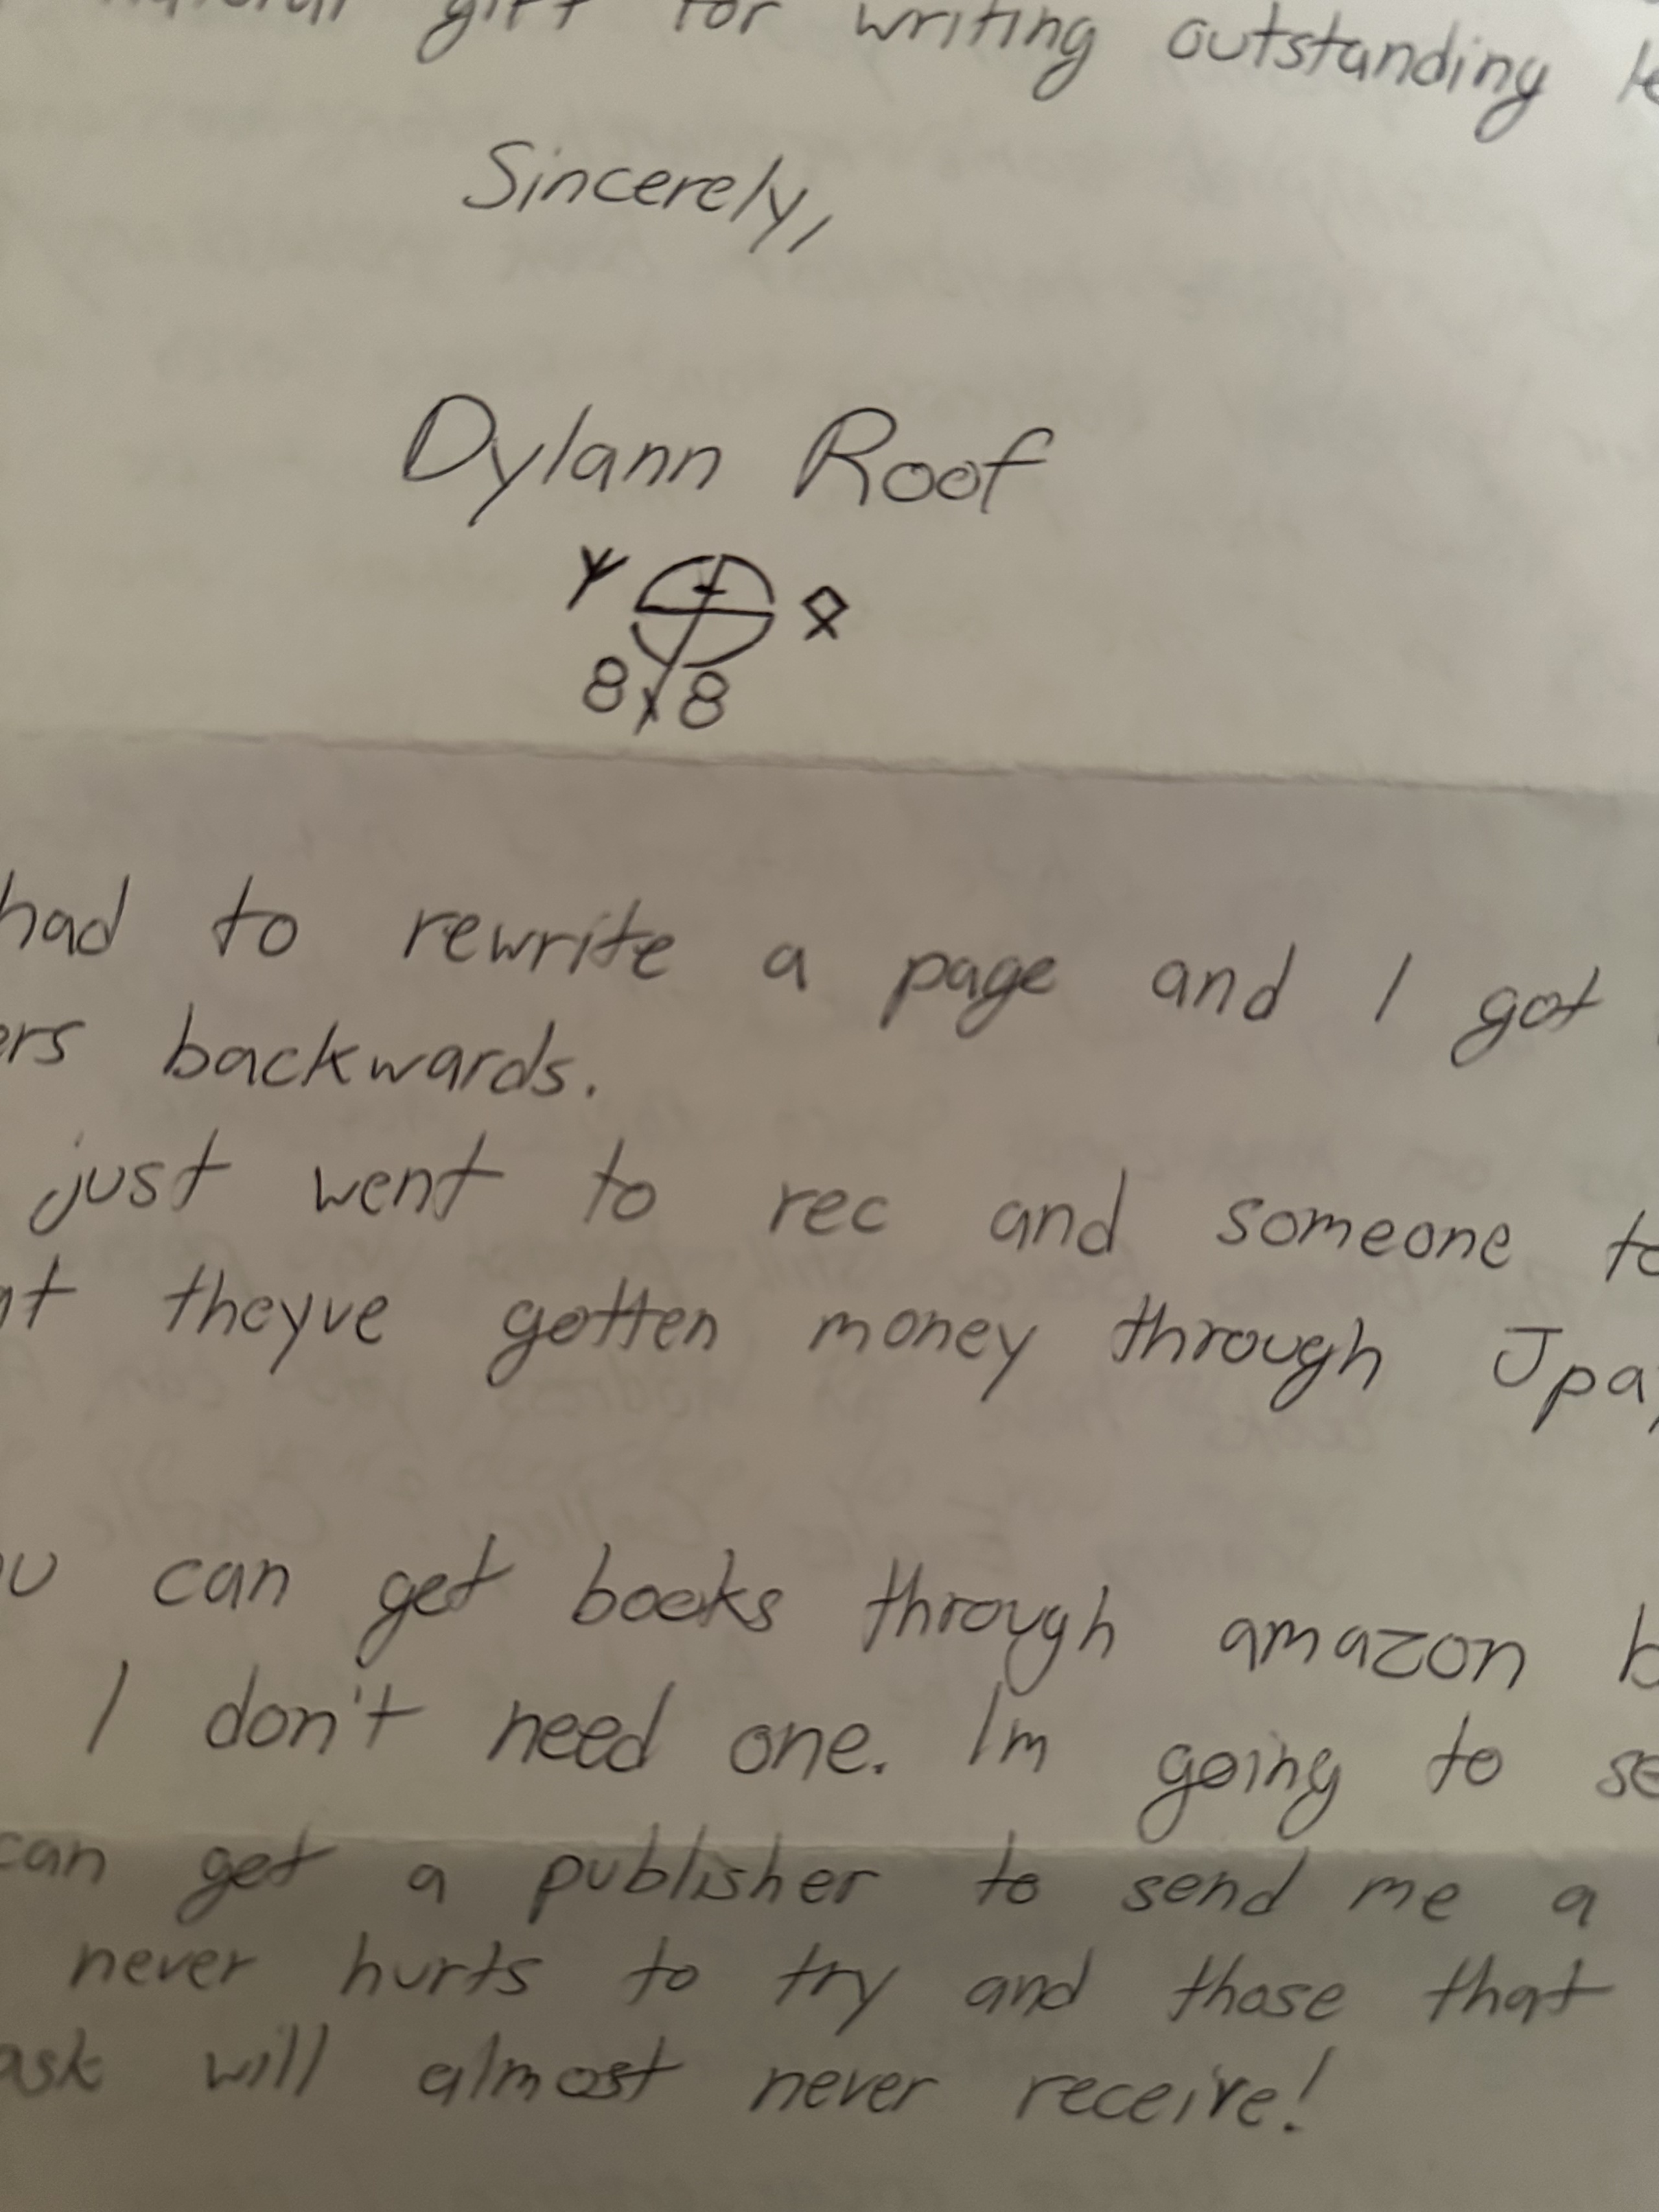 gift for writing outstanding
Sincerely,
Dylann Roof
8 8
had to rewrite a page and I got
backwards.
just went to rec and someone
theyve gotten money through Jpay
can get books through amazon
I don't need one. Im going to
can get a publisher to send me a
never hurts to try and those that
ask will almost never receive!